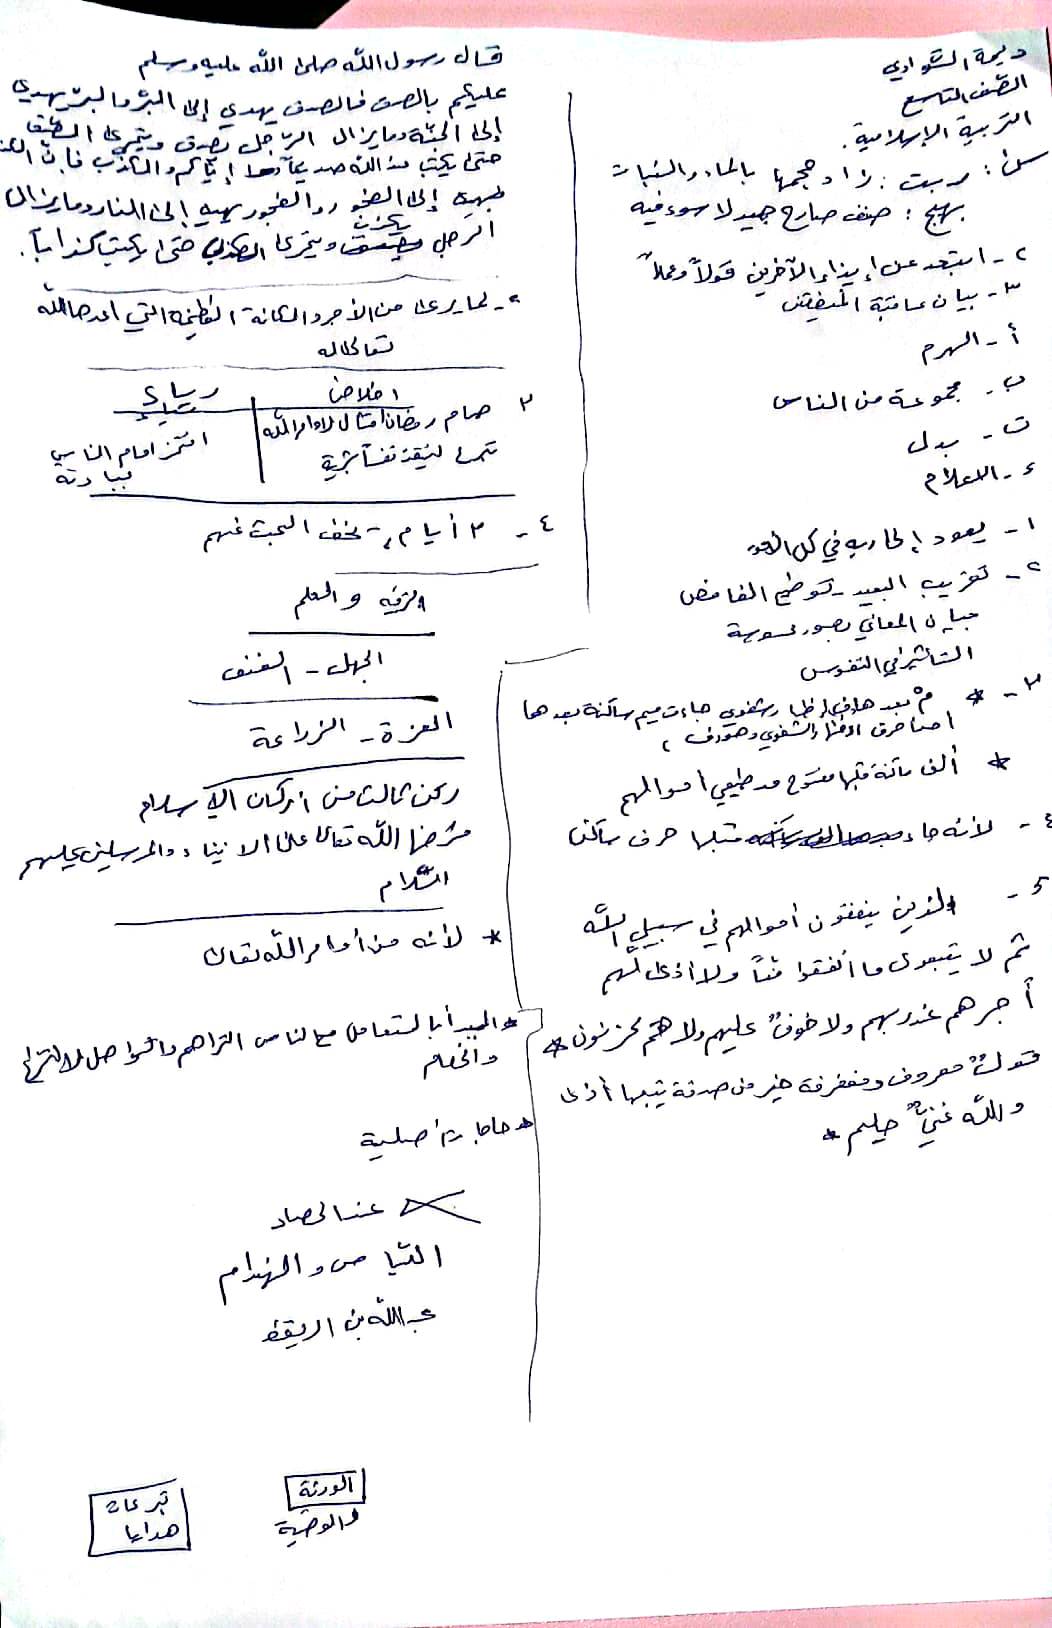 ديمة الشوادي
الصف التاسع
التربية الإسلامية.
س١: ربت: زاد حجمها بالماء والنبات
بهيج: صنف صارح جميد لا سوء فيه
٢- ابتعد عن إيذاء الآخرين قولاً وعملاً
٣- بيان عاقبة المنفقين
أ- الهرم
ب- مجموعة من الناس
ت- بدل
٤- الاعلام
١- يعود إلى ربه في كل
٢- تقريب البعيد - توضيح الغامض
المعاني بصور محسوسة
التأثير في النفوس
٣- * مْ بعدها إظهار شفوي جاءت ميم ساكنة بعدها
احد احرف الاظهار الشفوي وهو
* ألف ساكنة قبلها مفتوح مد طبيعي أموالهم
٤- لأنه جاء قبلها حرف ساكن
٥- الذين ينفقون أموالهم في سبيل الله
ثم لا يتبعون ما أنفقوا مناً ولا أذى لهم
أجرهم عند ربهم ولا خوفٌ عليهم ولا هم يحزنون *
قولٌ معروف ومغفرة خير من صدقة يتبعها أذى
والله غنيٌ حليم *
قال رسول الله صلى الله عليه وسلم
عليكم بالصدق فالصدق يهدي إلى البر والبر يهدي
إلى الجنة وما يزال الرجل يصدق ويتحرى الصدق
حتى يكتب عند الله صديقاً إياكم والكذب فإن
يهدي إلى الفجور والفجور يهدي إلى النار وما يزال
الرجل يكذب ويتحرى الكذب حتى يكتب كذاباً.
٢- لما يرى من الأجر والمكانة العظيمة التي اعدها الله
تعالى له
٣ اخلاص رياء
صام رمضان امتثال لاوامر الله
تبرع لينقذ نفساً بشرية
افتخر امام الناس
بعبادته
٤- ٣ أيام، - يخف البحث عنهم
الرفق والعلم
الجهل - العنف
العزة - الزراعة
ركن ثالث من أركان الإسلام
فرضها الله تعالى على الانبياء والمرسلين عليهم
السلام
* لأنه من أوامر الله تعالى
* المبدأ بالتعامل مع الناس التراحم والتواصل لا النزاع
والخصام
* حاجات أصلية
عند الحصاد
الثياب والهندام
عبدالله بن اريقط
الورثة
والوصية
تبرعات
هدايا